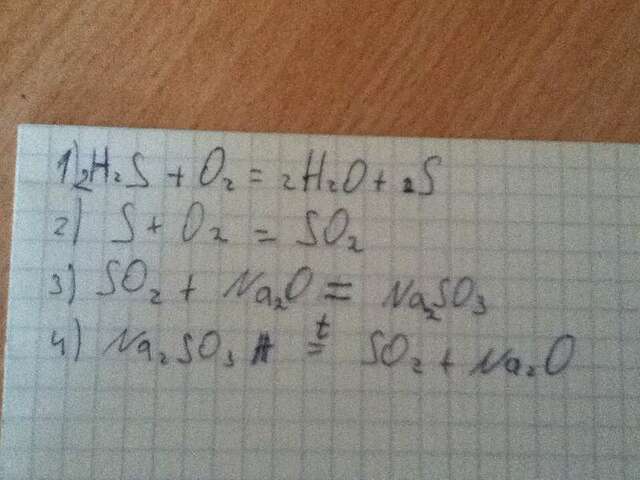 1) 2H₂S + O₂ = 2H₂O + 2S
2) S + O₂ = SO₂
3) SO₂ + Na₂O = Na₂SO₃
4) Na₂SO₃ =ᵗ SO₂ + Na₂O